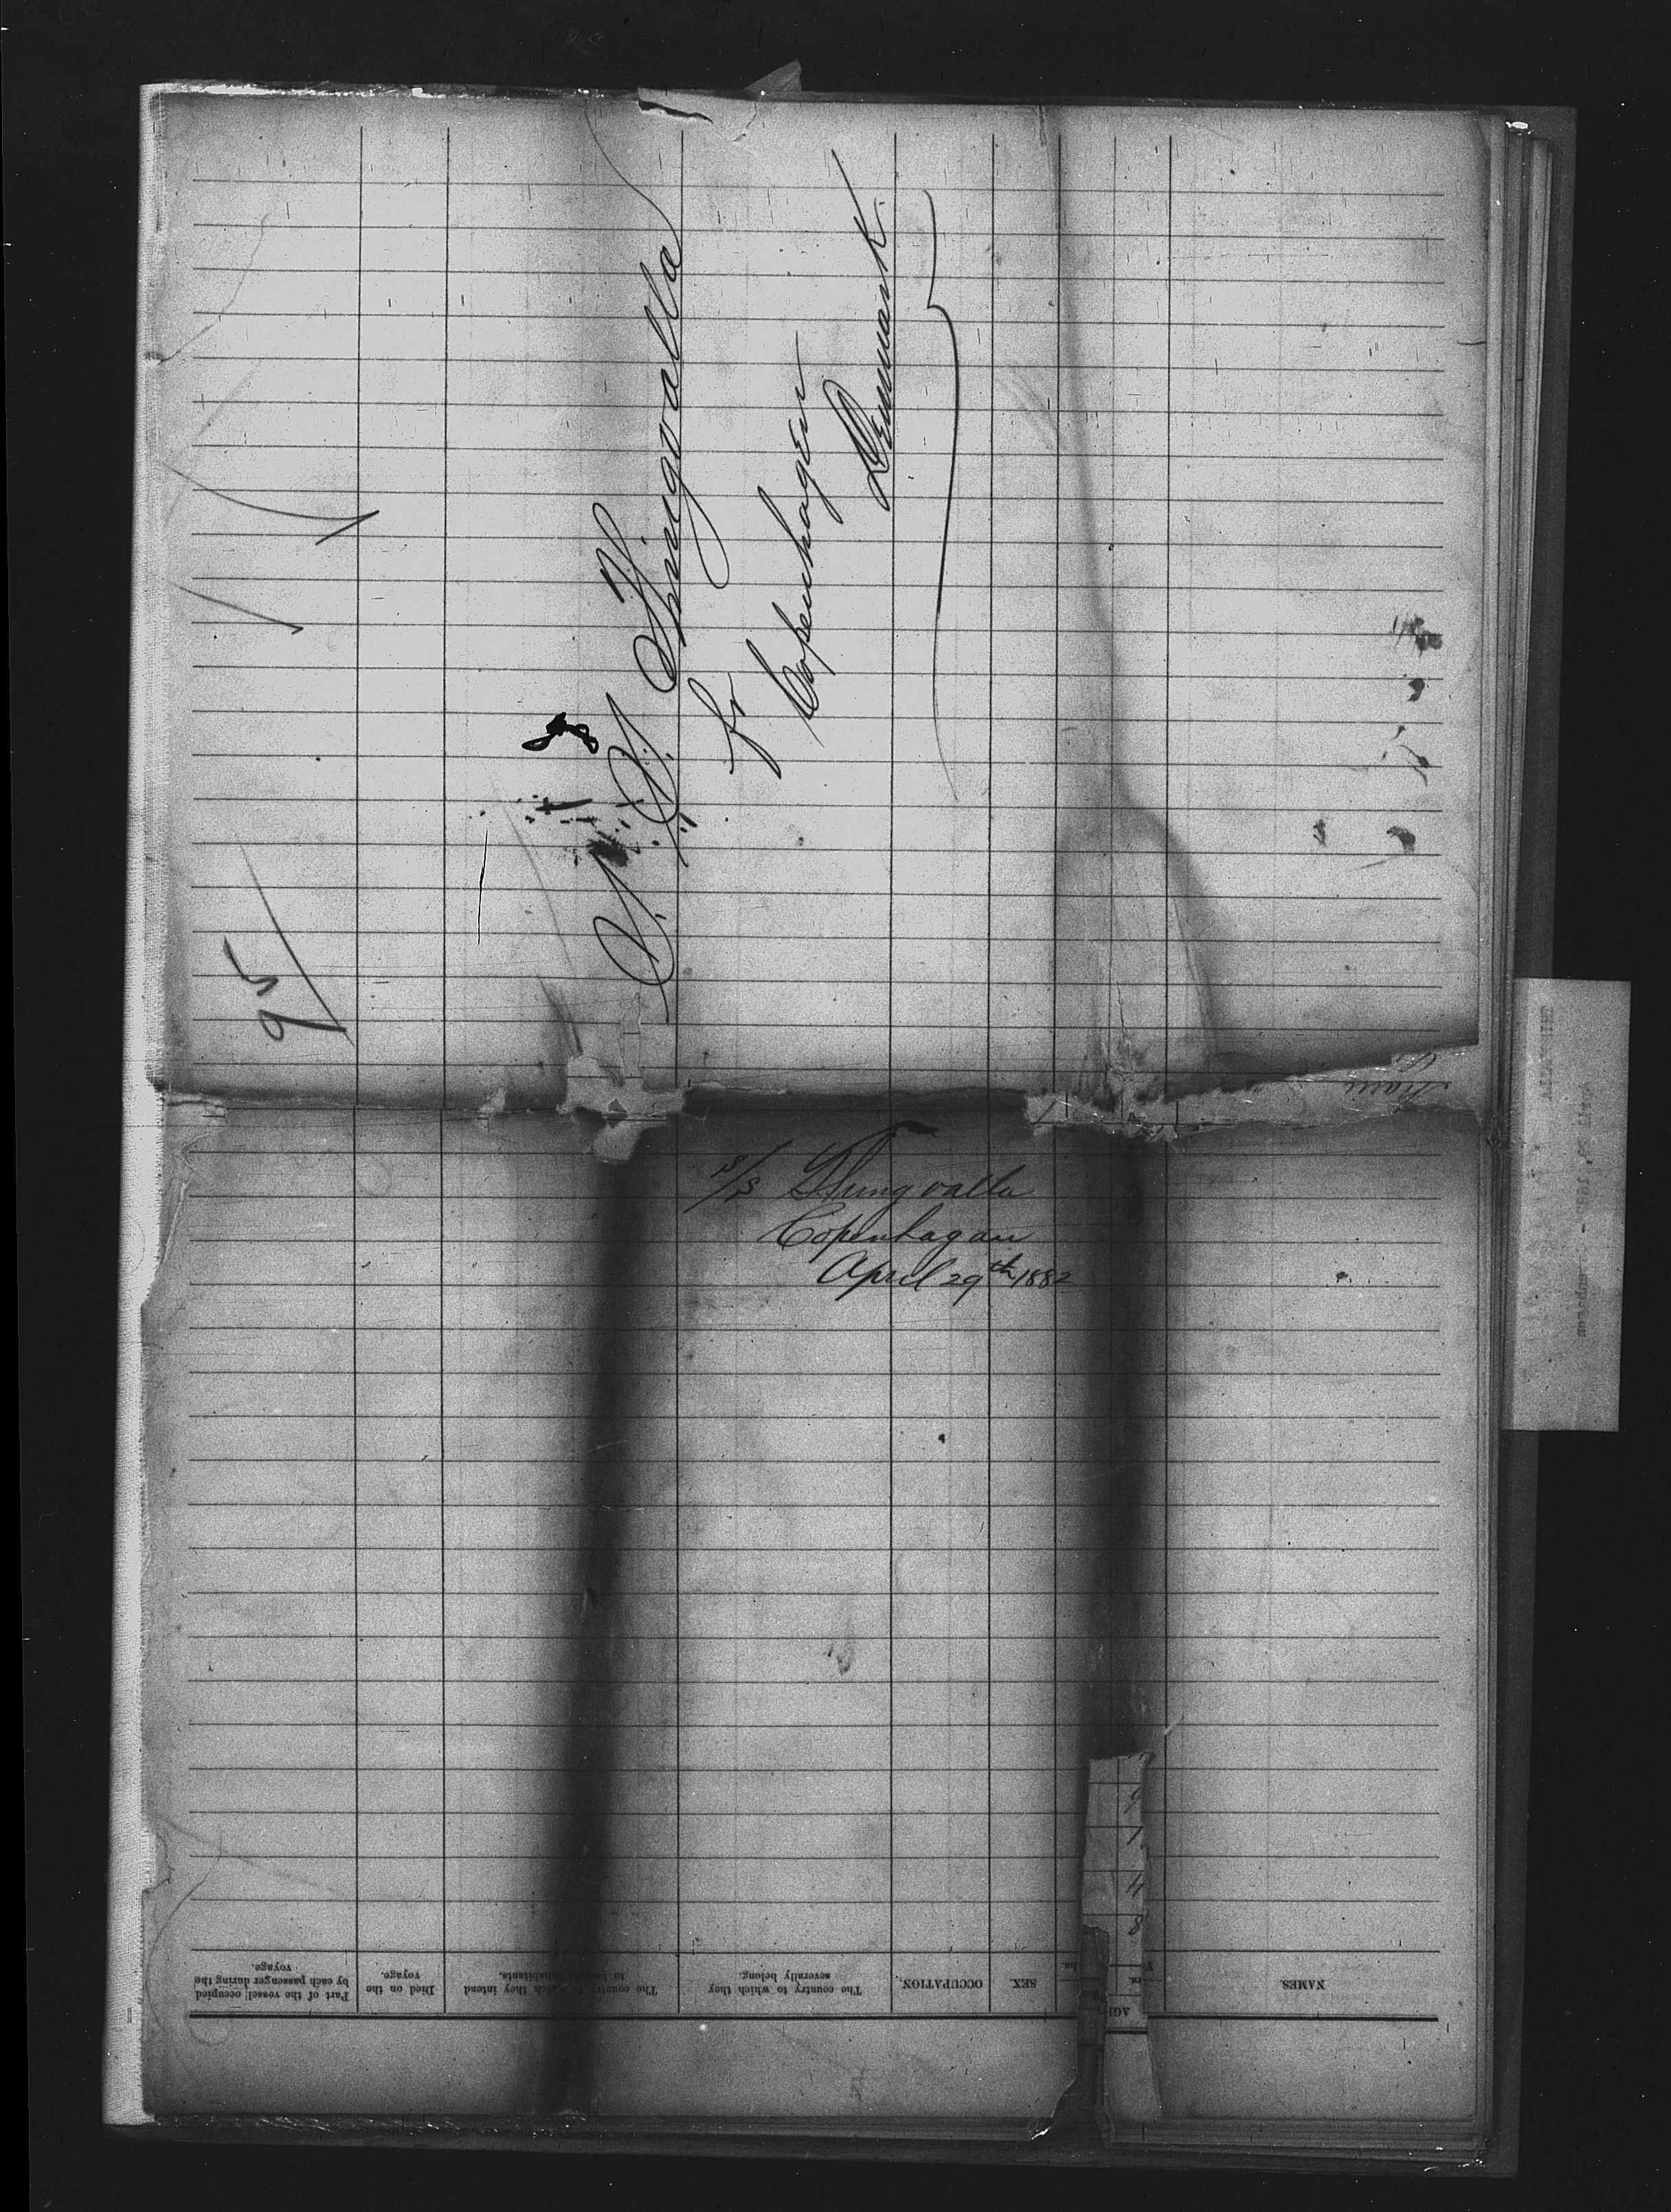 95
S. S. Thingvalla
fr
Copenhagen
Denmark.
S/S Thingvalla
Copenhagan
April 29th 1882
NAMES.
AGE
SEX.
OCCUPATION.
The country to which they
severally belong.
The country to which they intend
to become inhabitants.
Died on the
voyage.
Part of the vessel occupied
by each passenger during the
voyage.
8
4
1
9